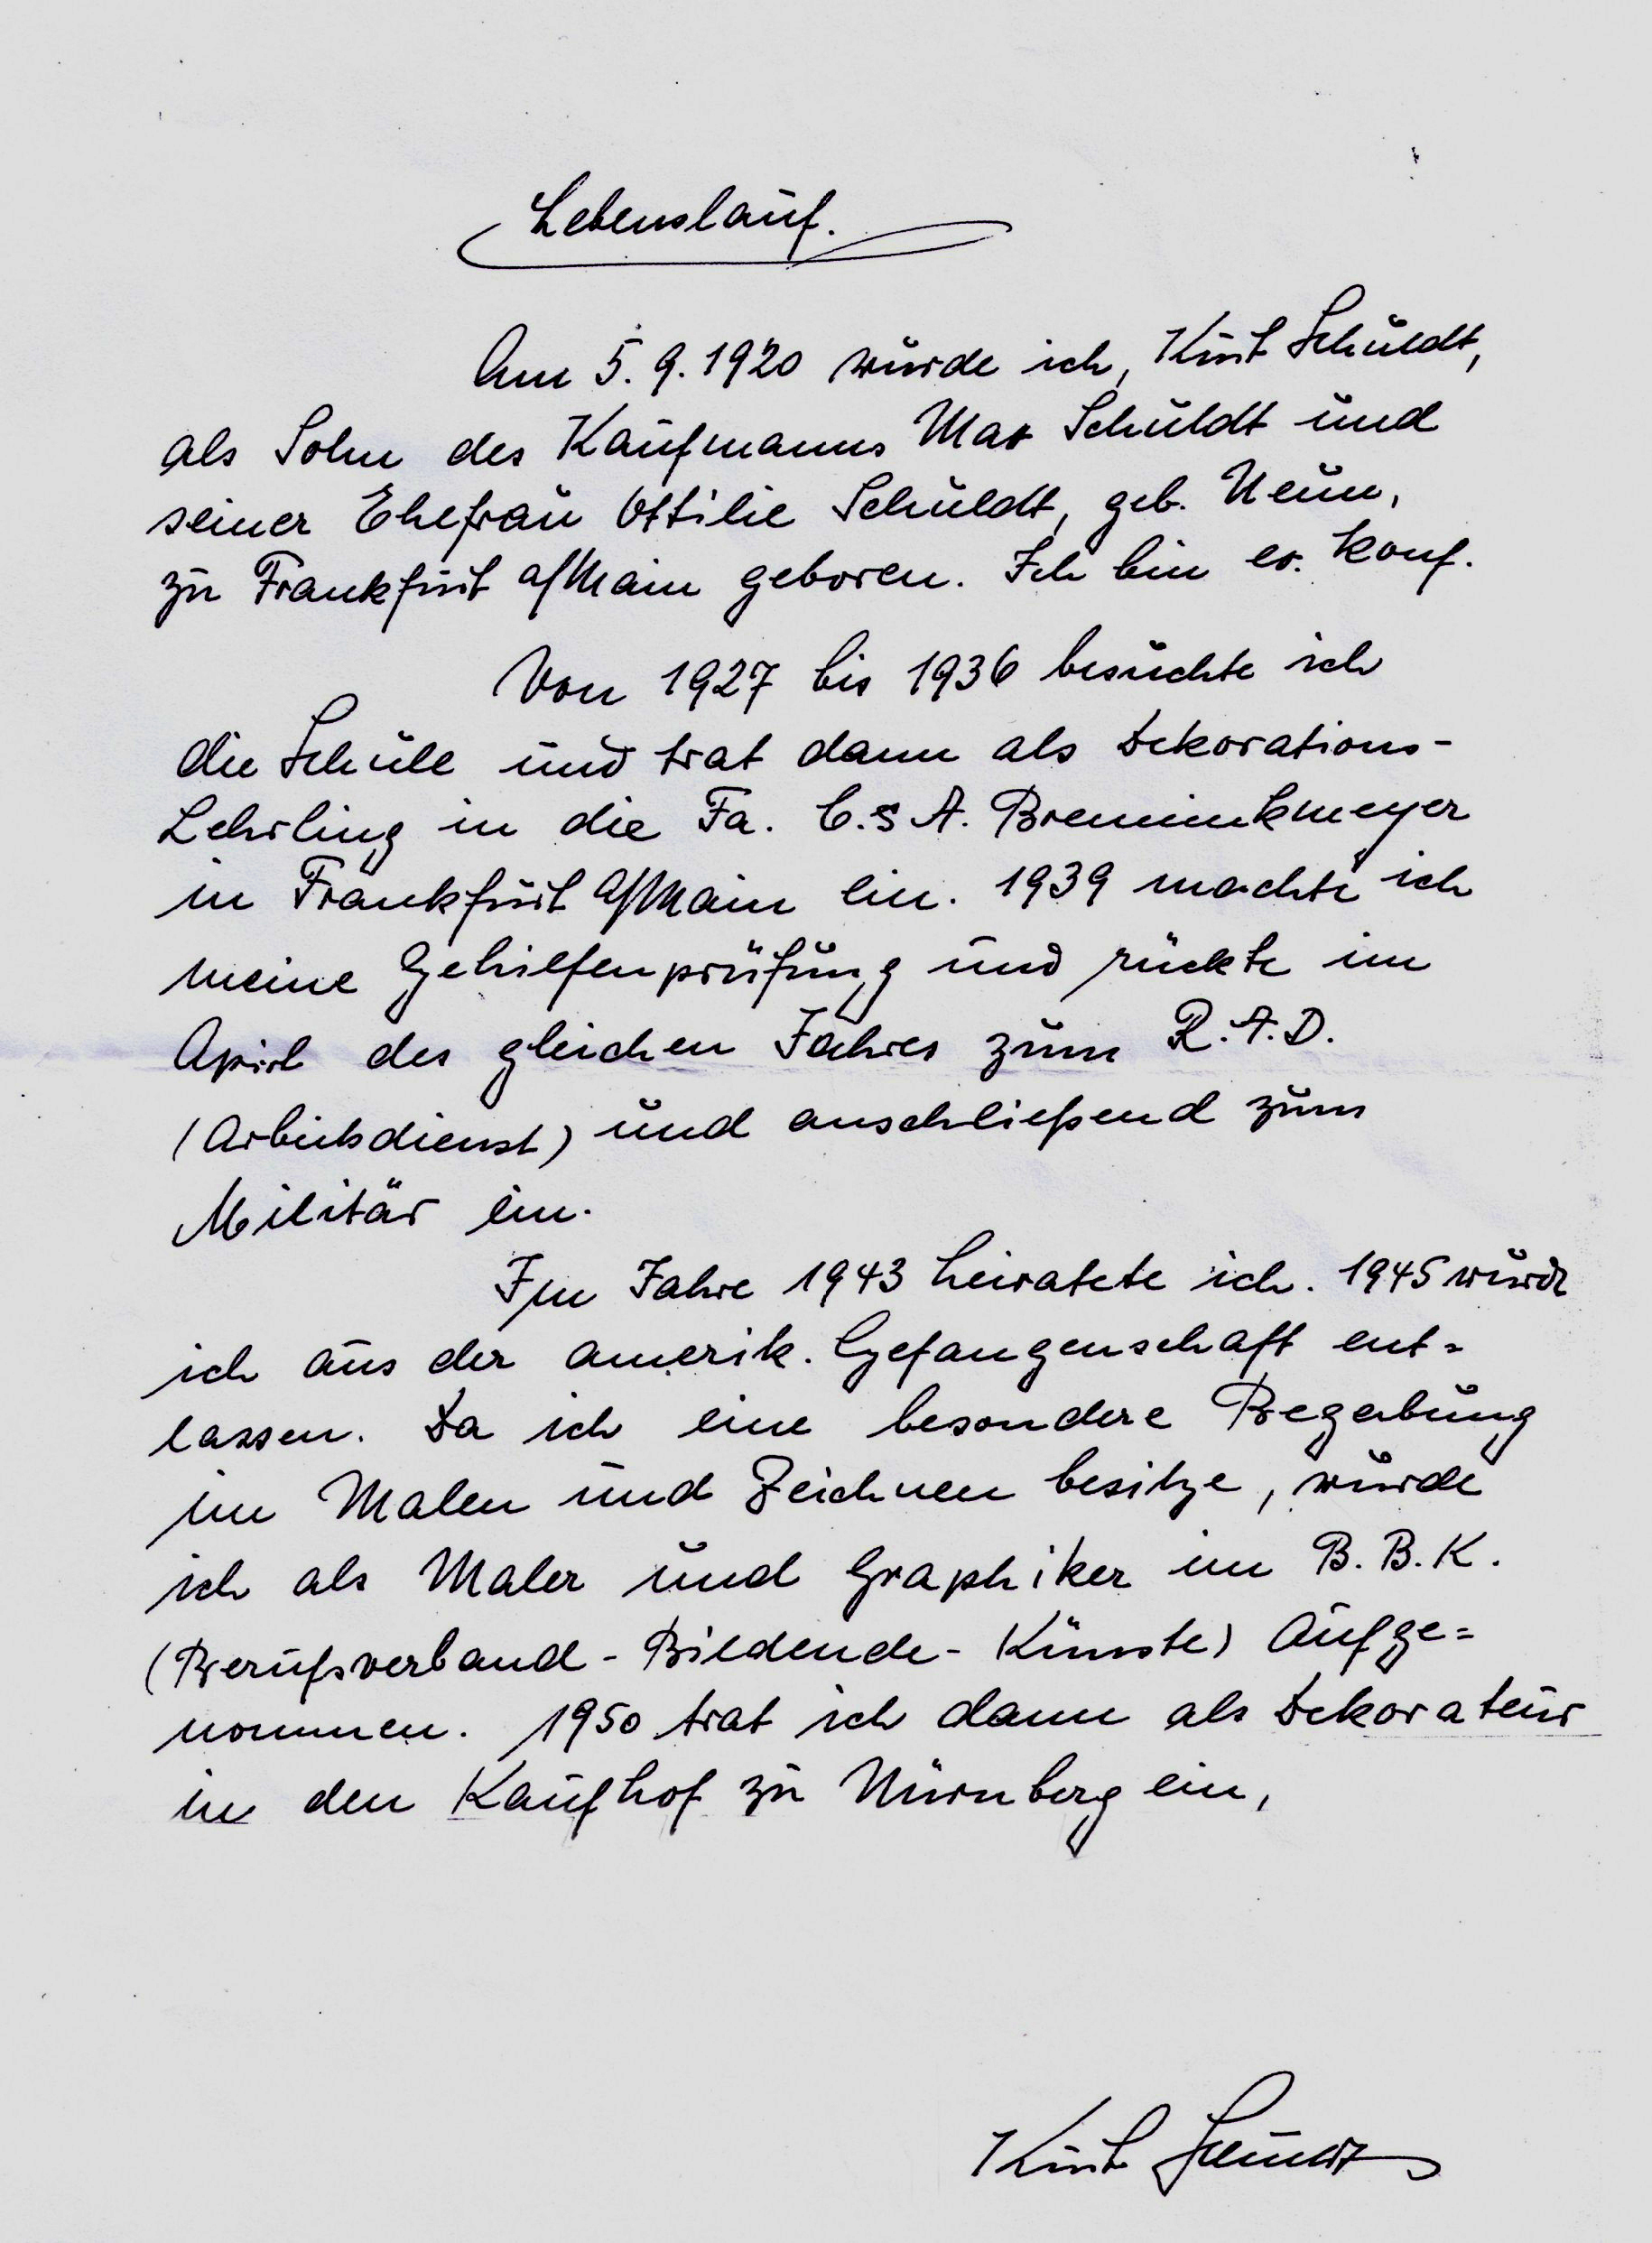 Lebenslauf.
Am 5.9.1920 wurde ich, Kurt Schuldt,
als Sohn des Kaufmanns Max Schuldt und
seiner Ehefrau Ottilie Schuldt, geb. Neun,
zu Frankfurt a/Main geboren. Ich bin ev. Konf.
Von 1927 bis 1936 besuchte ich
die Schule und trat dann als Dekorations-
Lehrling in die Fa. C. & A. Brenninkmeyer
in Frankfurt a/Main ein. 1939 machte ich
meine Gehilfenprüfung und rückte im
April des gleichen Jahres zum R.A.D.
(Arbeitsdienst) und anschließend zum
Militär ein.
Im Jahre 1943 heiratete ich. 1945 wurde
ich aus der amerik. Gefangenschaft ent=
lassen. Da ich eine besondere Begabung
im Malen und Zeichnen besitze, wurde
ich als Maler und Graphiker im B.B.K.
(Berufsverband-Bildende-Künste) aufge=
nommen. 1950 trat ich dann als Dekorateur
in den Kaufhof zu Nürnberg ein,
Kurt Schuldt